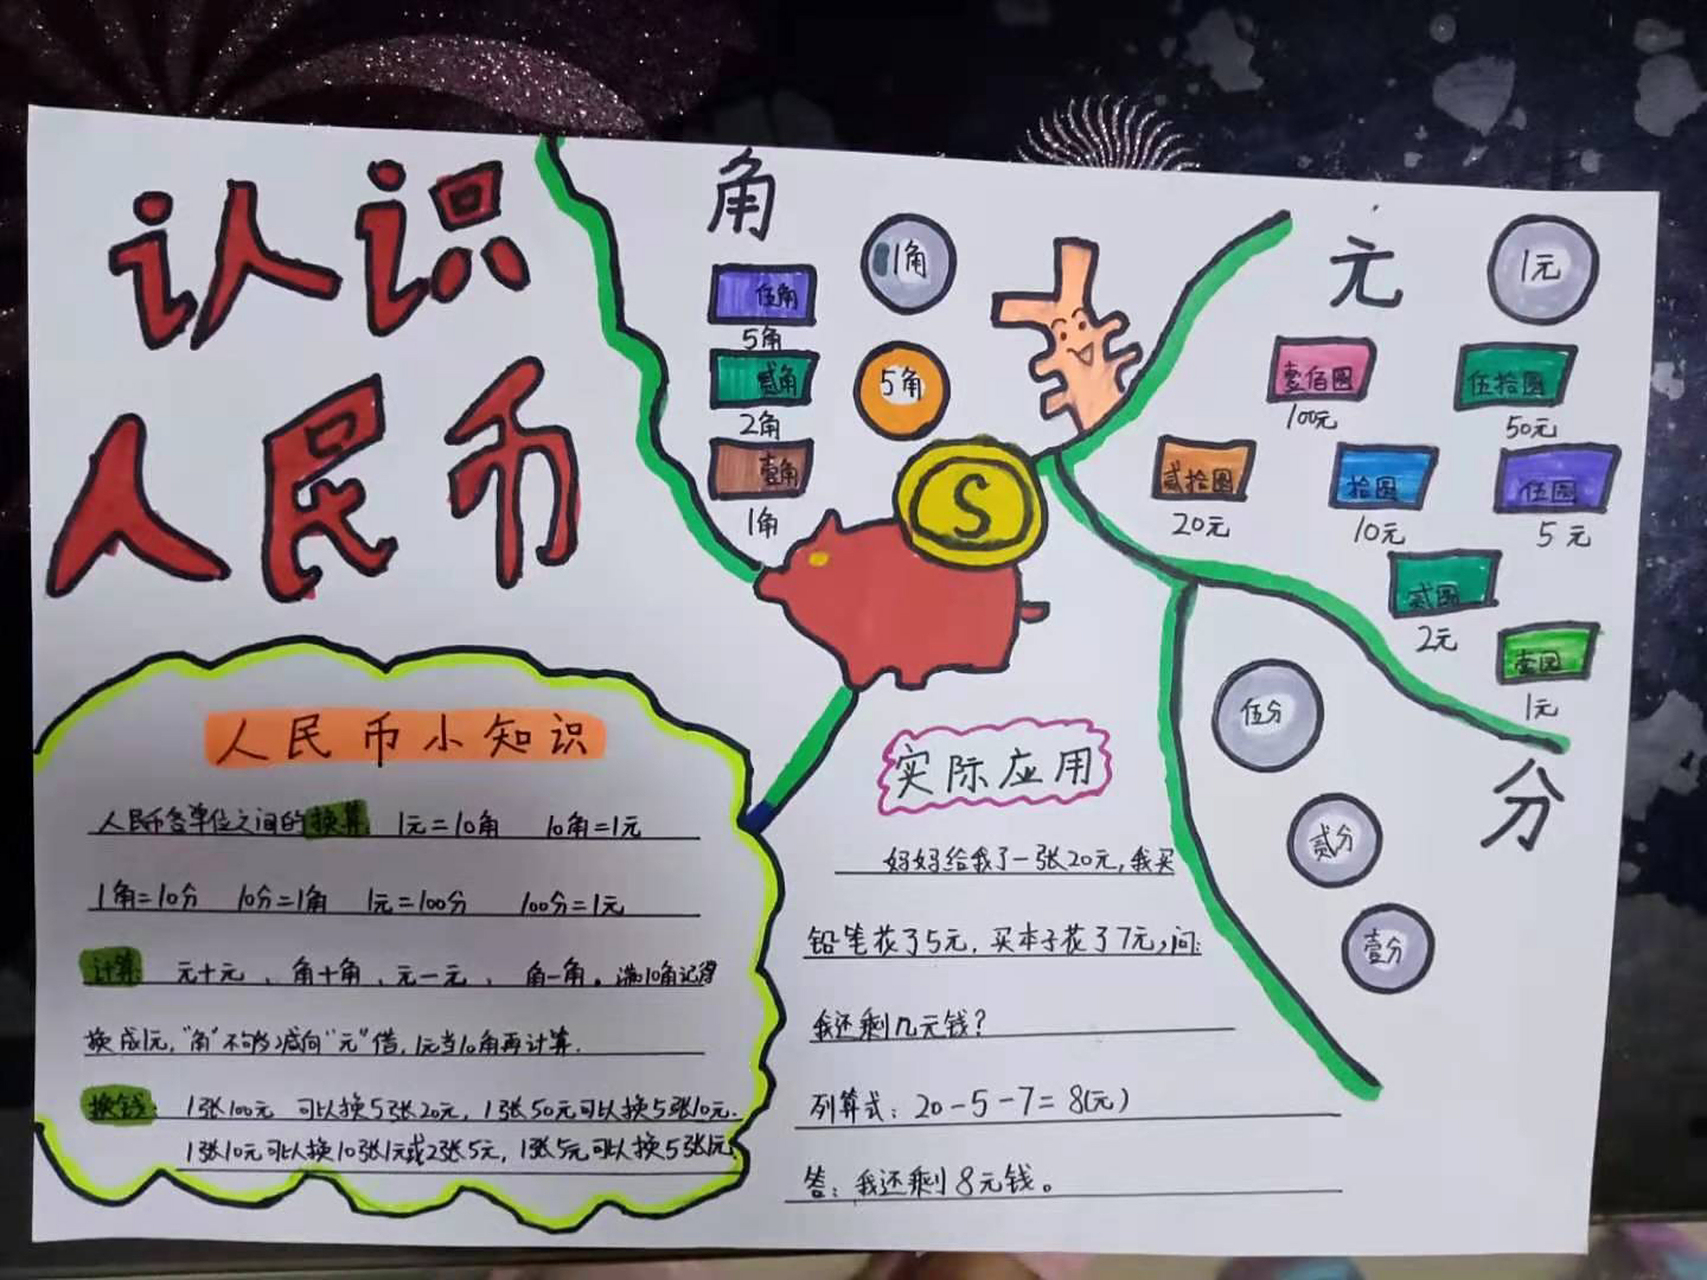 认识
人民币
角
1角
伍角
5角
贰角
2角
5角
壹角
1角
S
元
1元
壹佰圆
100元
伍拾圆
50元
贰拾圆
20元
拾圆
10元
伍圆
5元
贰圆
2元
壹圆
1元
分
伍分
贰分
壹分
人民币小知识
人民币各单位之间的换算: 1元=10角 10角=1元
1角=10分 10分=1角 1元=100分 100分=1元
计算: 元+元、角+角、元-元、角-角。满10角记得
换成1元,"角"不够减向"元"借,1元当10角再计算.
换钱: 1张100元 可以换5张20元,1张50元可以换5张10元.
1张10元可以换10张1元或2张5元,1张5元可以换5张1元.
实际应用
妈妈给我了一张20元,我买
铅笔花了5元,买本子花了7元,问:
我还剩几元钱?
列算式:20-5-7=8(元)
答:我还剩8元钱。